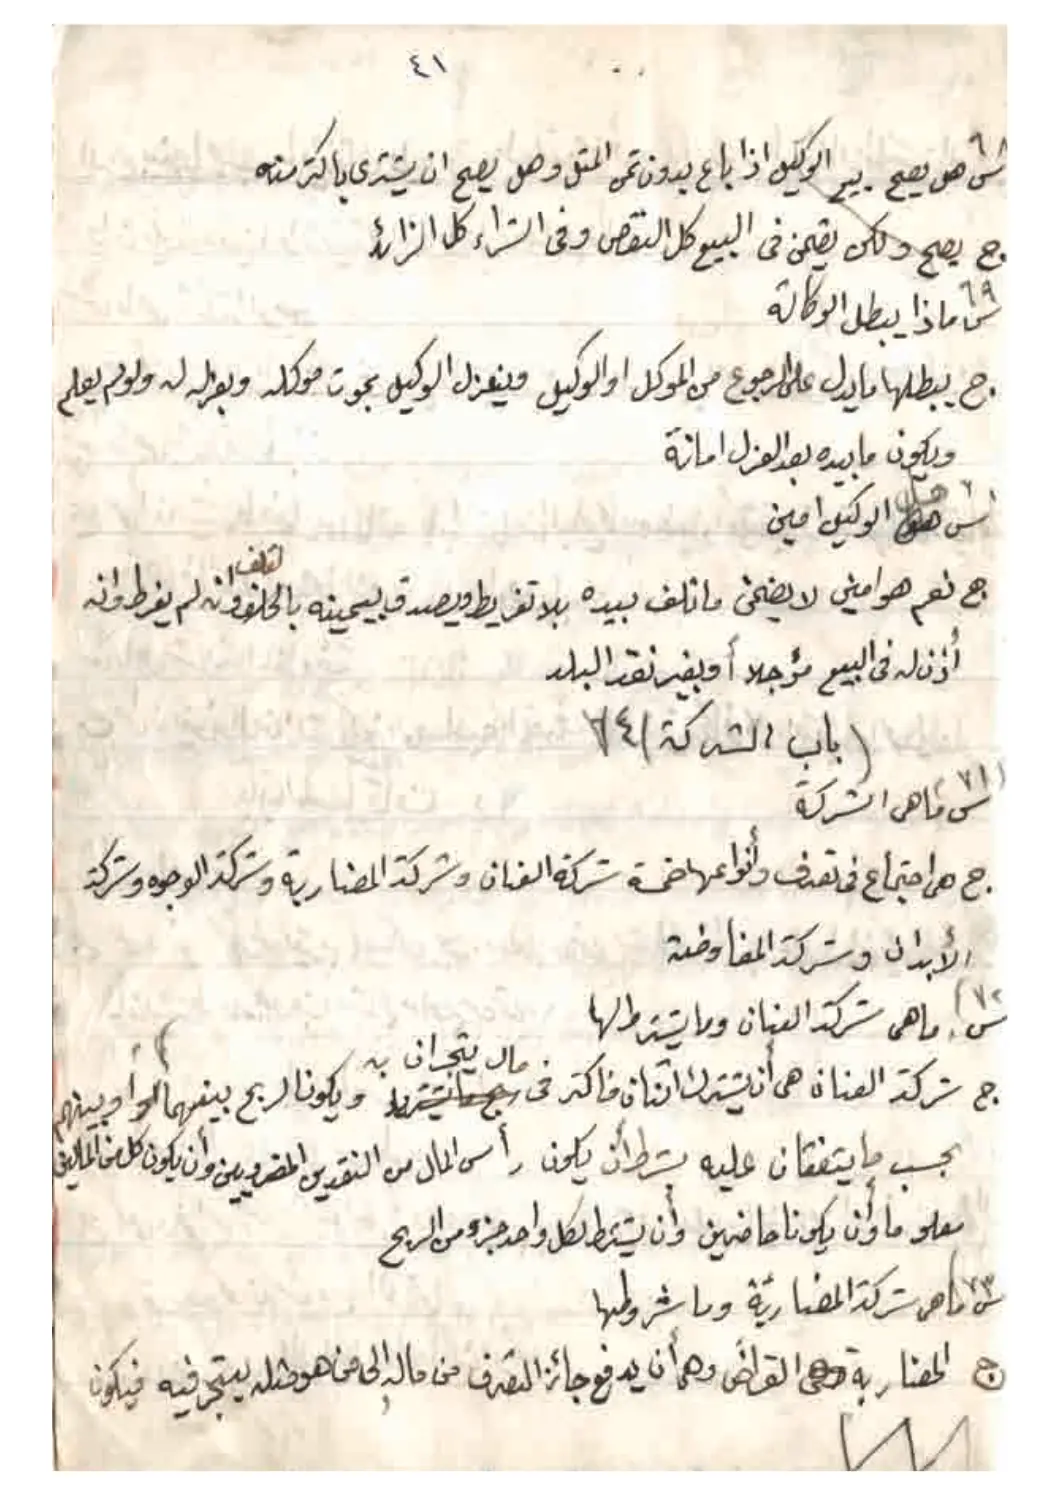 ٤١
س٦٨ هل يصح بيع الوكيل اذا باع بدون ثمن المثل وهل يصح ان يشترى باكثر منه
ج يصح ولكن يضمن فى البيع كل النقص وفى الشراء كل الزائد
س٦٩ ماذا يبطل الوكالة
ج يبطلها مايدل على الرجوع من الموكل او الوكيل وينعزل الوكيل بموت موكله وبعزله له ولولم يعلم
ويكون مابيده بعد العزل امانة
س هل الوكيل امين
ج نعم هو امين لا يضمن ماتلف بيده بلا تفريط ويصدق بيمينه بالتلف وانه لم يفرط وانه
أذن له فى البيع مؤجلا أو بغير نقد البلد
(باب الشركة) ٧٤
س٧١ ماهى الشركة
ج هى اجتماع فى تصرف وأنواعها خمسة شركة العنان وشركة المضاربة وشركة الوجوه وشركة
الأبدان وشركة المفاوضة
س٧٢) ماهى شركة العنان وما يشترط لها
ج شركة العنان هى أن يشترك اثنان فاكثر فى مال يتجران به ويكون الربح بينهما أو بينهم
بحسب ما يتفقان عليه بشرط أن يكون رأس المال من النقدين المضروبين وأن يكون كل من المالين
معلوما وأن يكونا حاضرين وأن يشترط لكل واحد جزء من الربح
س٧٣ ماهى شركة المضاربة وما شروطها
ج المضاربة هى القراض وهى أن يدفع جائز التصرف من ماله الى من هو مثله ليتجر فيه فيكون